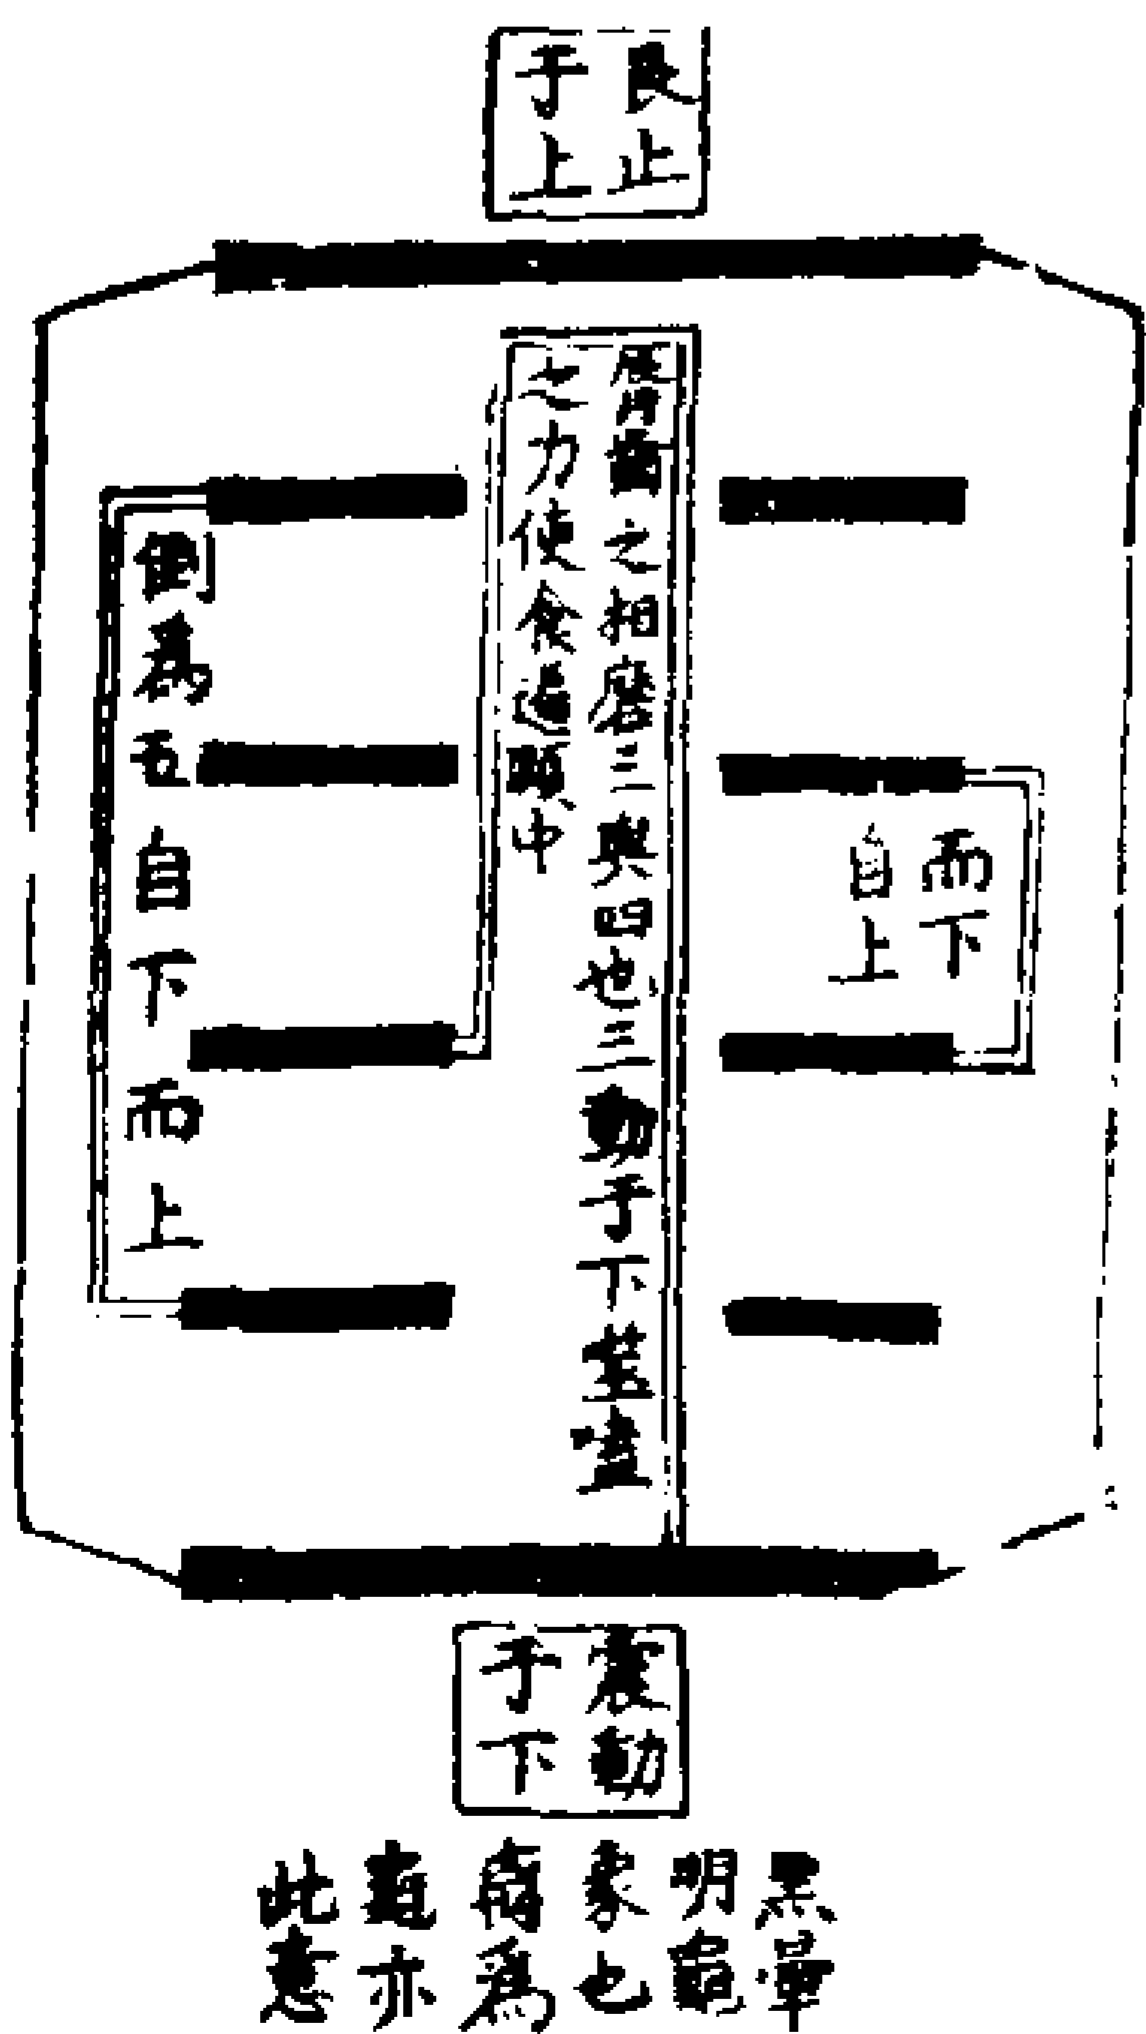 艮止
于上
脣齒之相磨三與四也三動于下
之力使食進頤中
而下
自上
倒為互自下而上
震動
于下
黑單
明龜
象也
為
亦
此意